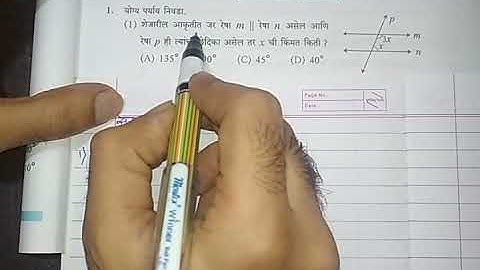 1. योग्य पर्याय निवडा.
(1) शेजारील आकृतीत जर रेषा m || रेषा n असेल आणि
रेषा p ही त्यांची असेल तर x ची किंमत किती ?
(A) 135° 90° (C) 45° (D) 40°
p
3x
m
x
n
Page No.
Date
1)
Winner